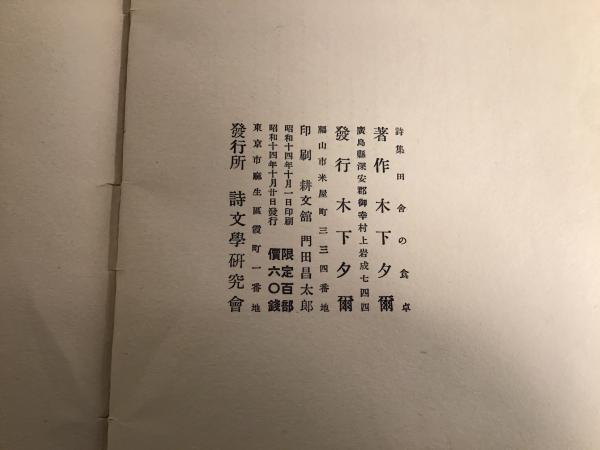 詩集 田舍の食卓
著作 木下夕爾
廣島縣深安郡御幸村上岩成七四四
發行 木下夕爾
福山市米屋町三三四番地
印刷 耕文舘 門田昌太郎
昭和十四年十月一日印刷
昭和十四年十月廿日發行
限定百部
價六〇錢
東京市麻生區霞町一番地
發行所 詩文學硏究會